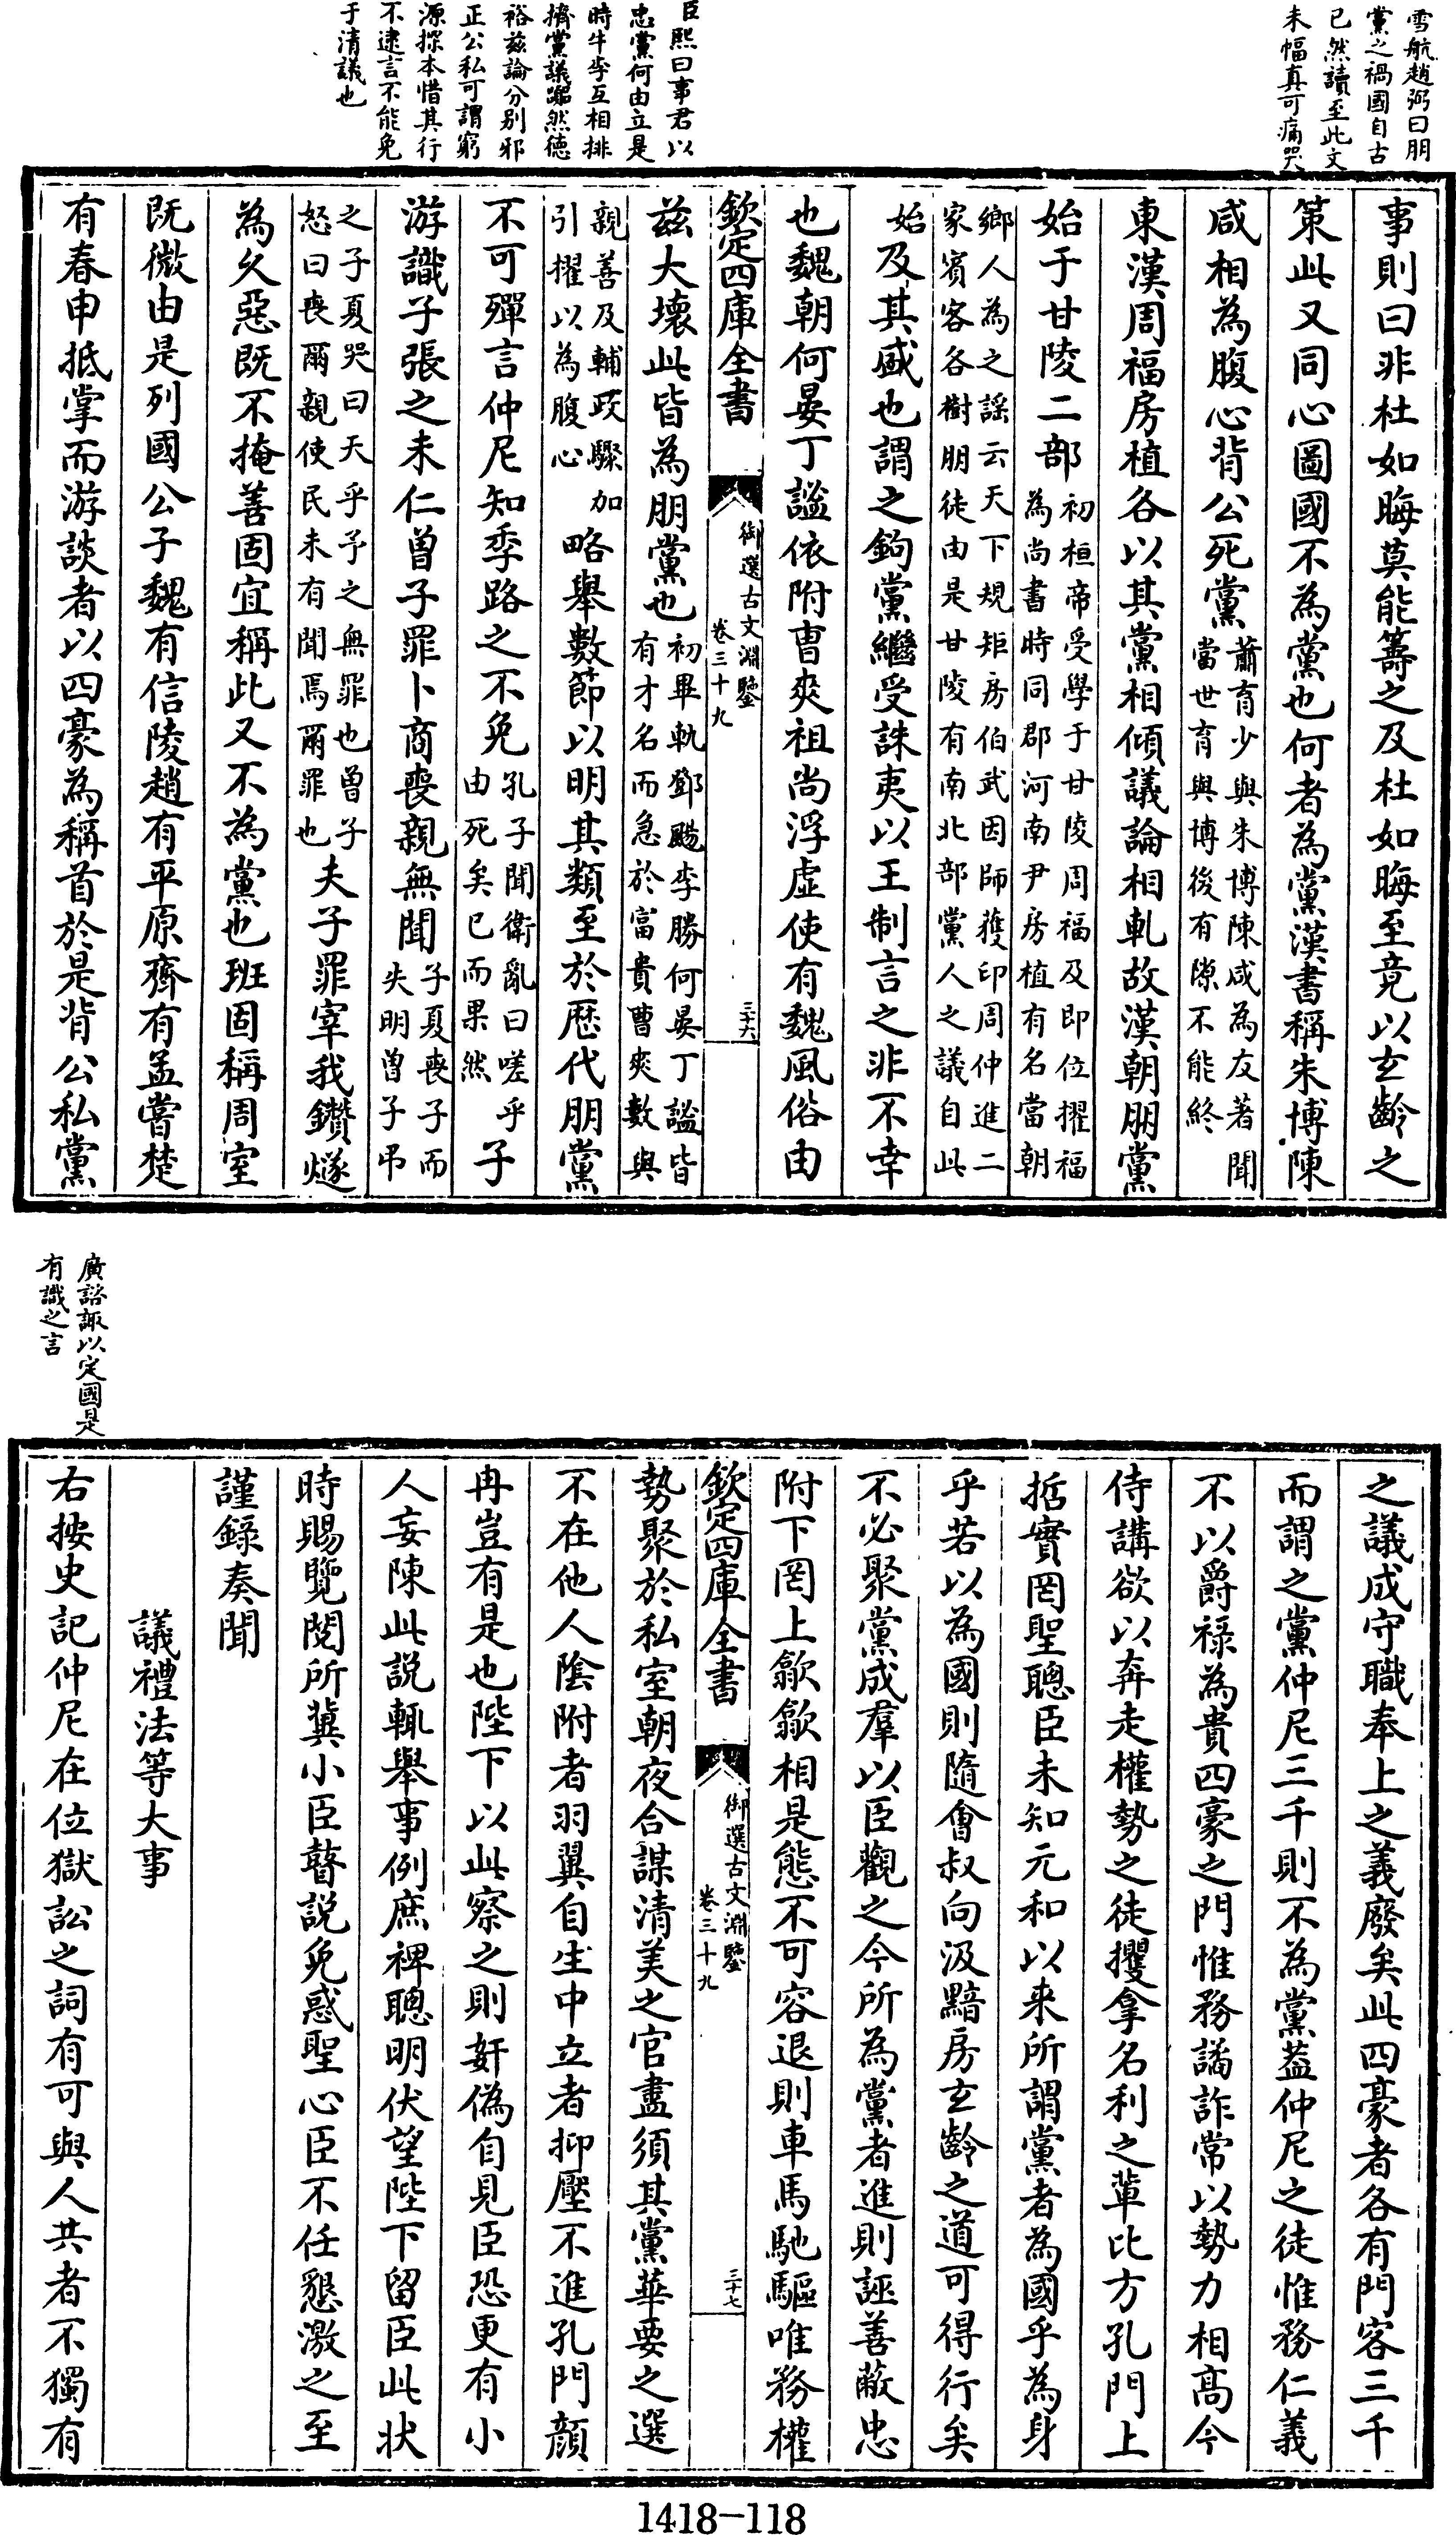 雪航趙弼曰朋
黨之禍國自古
已然讀至此文
未幅真可痛哭
臣熙曰事君以
忠黨何由立是
時牛李互相排
擠黨議蹤然德
裕兹論分别邪
正公私可謂窮
源探本惜其行
不逮言不能免
于清議也
事則曰非杜如晦莫能籌之及杜如晦至竟以玄齡之
策此又同心圖國不為黨也何者為黨漢書稱朱博陳
咸相為腹心背公死黨蕭育少與朱博陳咸為友著聞
當世育與博後有隙不能終
東漢周福房植各以其黨相傾議論相軋故漢朝朋黨
始于甘陵二部初桓帝受學于甘陵周福及即位擢福
為尚書時同郡河南尹房植有名當朝
鄉人為之謡云天下規矩房伯武因師獲印周仲進二
家賓客各樹朋徒由是甘陵有南北部黨人之議自此
始及其盛也謂之鉤黨繼受誅夷以王制言之非不幸
也魏朝何晏丁謐依附曹爽祖尚浮虚使有魏風俗由
欽定四庫全書
御選古文淵鑒
卷三十九
三十六
兹大壞此皆為朋黨也初畢軌鄧颺李勝何晏丁謐皆
有才名而急於富貴曹爽數與
親善及輔政驟加
引擢以為腹心略舉數節以明其類至於歴代朋黨
不可殫言仲尼知季路之不免孔子聞衛亂曰嗟乎
由死矣已而果然子
游識子張之未仁曽子罪卜商喪親無聞子夏喪子而
失明曽子弔
之子夏哭曰天乎予之無罪也曽子
怒曰喪爾親使民未有聞焉爾罪也夫子罪宰我鑽燧
為久惡既不掩善固宜稱此又不為黨也班固稱周室
既微由是列國公子魏有信陵趙有平原齊有孟嘗楚
有春申抵掌而游談者以四豪為稱首於是背公私黨
廣諮諏以定國是
有識之言
之議成守職奉上之義廢矣此四豪者各有門客三千
而謂之黨仲尼三千則不為黨葢仲尼之徒惟務仁義
不以爵禄為貴四豪之門惟務譎詐常以勢力相髙今
侍講欲以奔走權勢之徒攫拿名利之輩比方孔門上
括實罔聖聰臣未知元和以来所謂黨者為國乎為身
乎若以為國則隨會叔向汲黯房玄齡之道可得行矣
不必聚黨成羣以臣觀之今所為黨者進則誣善蔽忠
附下罔上歙歙相是態不可容退則車馬馳驅唯務權
欽定四庫全書
御選古文淵鑒
卷三十九
三十七
勢聚於私室朝夜合謀清美之官盡須其黨華要之選
不在他人陰附者羽翼自生中立者抑壓不進孔門顔
冉豈有是也陛下以此察之則奸偽自見臣恐更有小
人妄陳此説輒舉事例庶裨聰明伏望陛下留臣此状
時賜覽閲所冀小臣瞽説免惑聖心臣不任懇激之至
謹録奏聞
議禮法等大事
右按史記仲尼在位獄訟之詞有可與人共者不獨有
1418-118